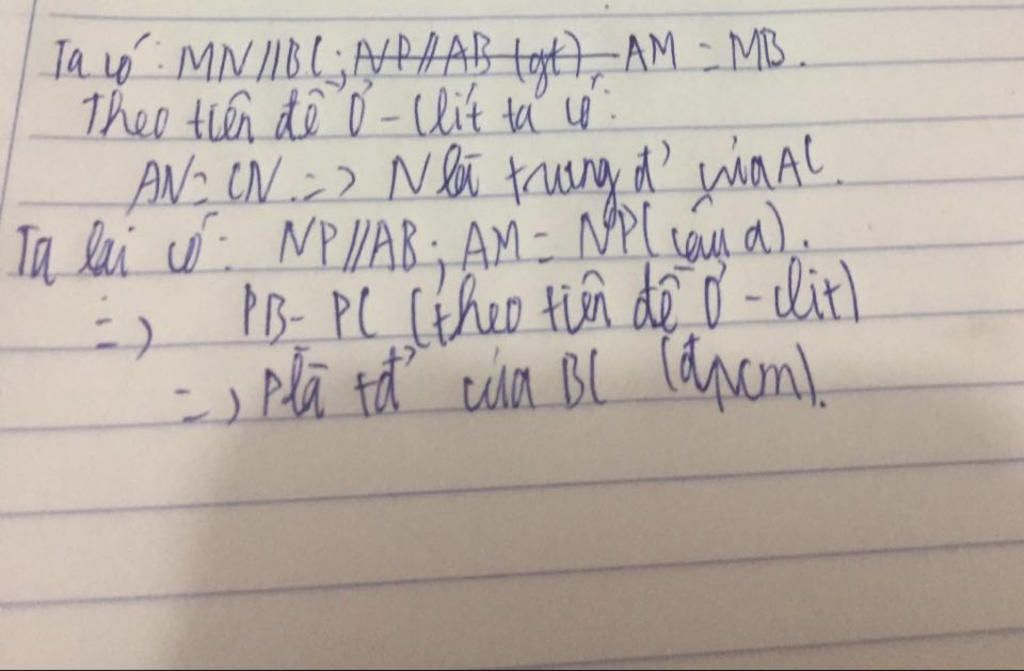 Ta có: MN//BC; NP//AB (gt), AM = MB.
Theo tiên đề Ơ-Clít ta có:
AN = CN => N là trung đ' của AC.
Ta lại có: NP//AB; AM = NP (câu a).
=> PB = PC (theo tiên đề Ơ-clit)
=> P là tđ' của BC (đpcm).